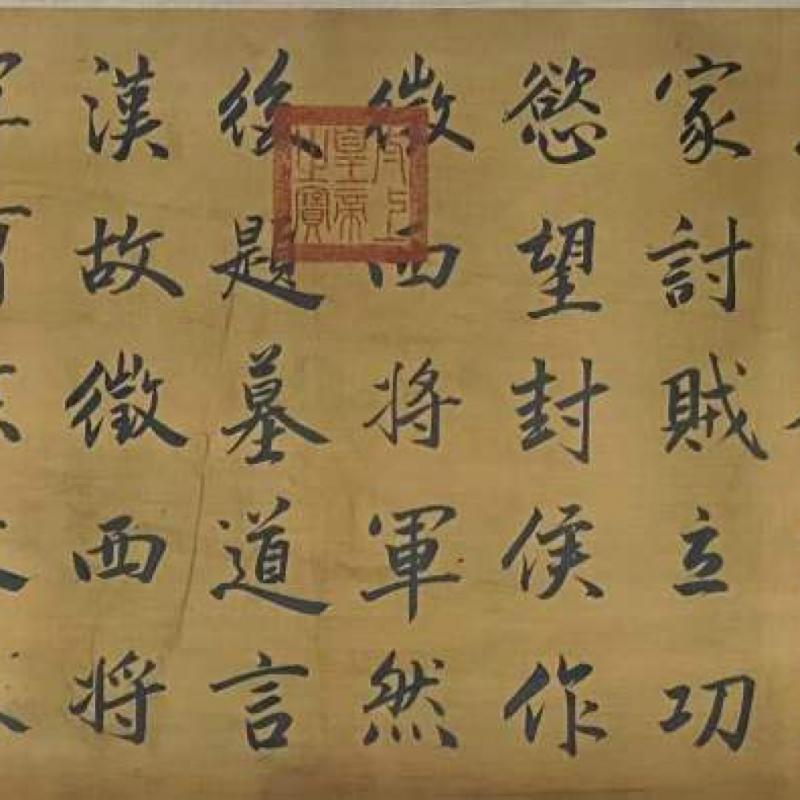 家討賊立功
慾望封侯作
徵西将軍然
後題墓道言
漢故徵西将
皇帝
之寶